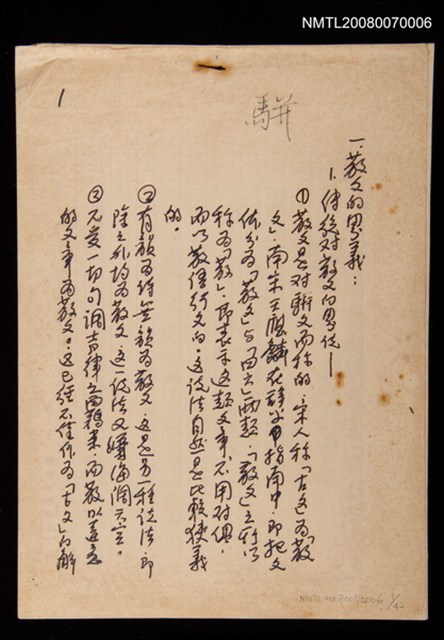 NMTL20080070006
1
駢
一、散文的界義:
1. 傳統對散文的界代—
①散文是對駢文而稱的,宋人稱「古文」為「散
文」,南宋王應麟在辭學指南中,即把文
體分為「散文」與「四六」兩類,「散文」之所以
稱為「散」,即表示這類文章不用對偶,
而以散體行文的。這說法自然是比較狹義
的。
②有韻為詩無韻為散文,這是另一種說法,即
除詩外均為散文,這一說法又嫌海濶天空。
③不受一切句調音律之羈束,而散以達意
的文章為散文。這已經不僅作為「古文」的解
NMTL20080070006 1/42